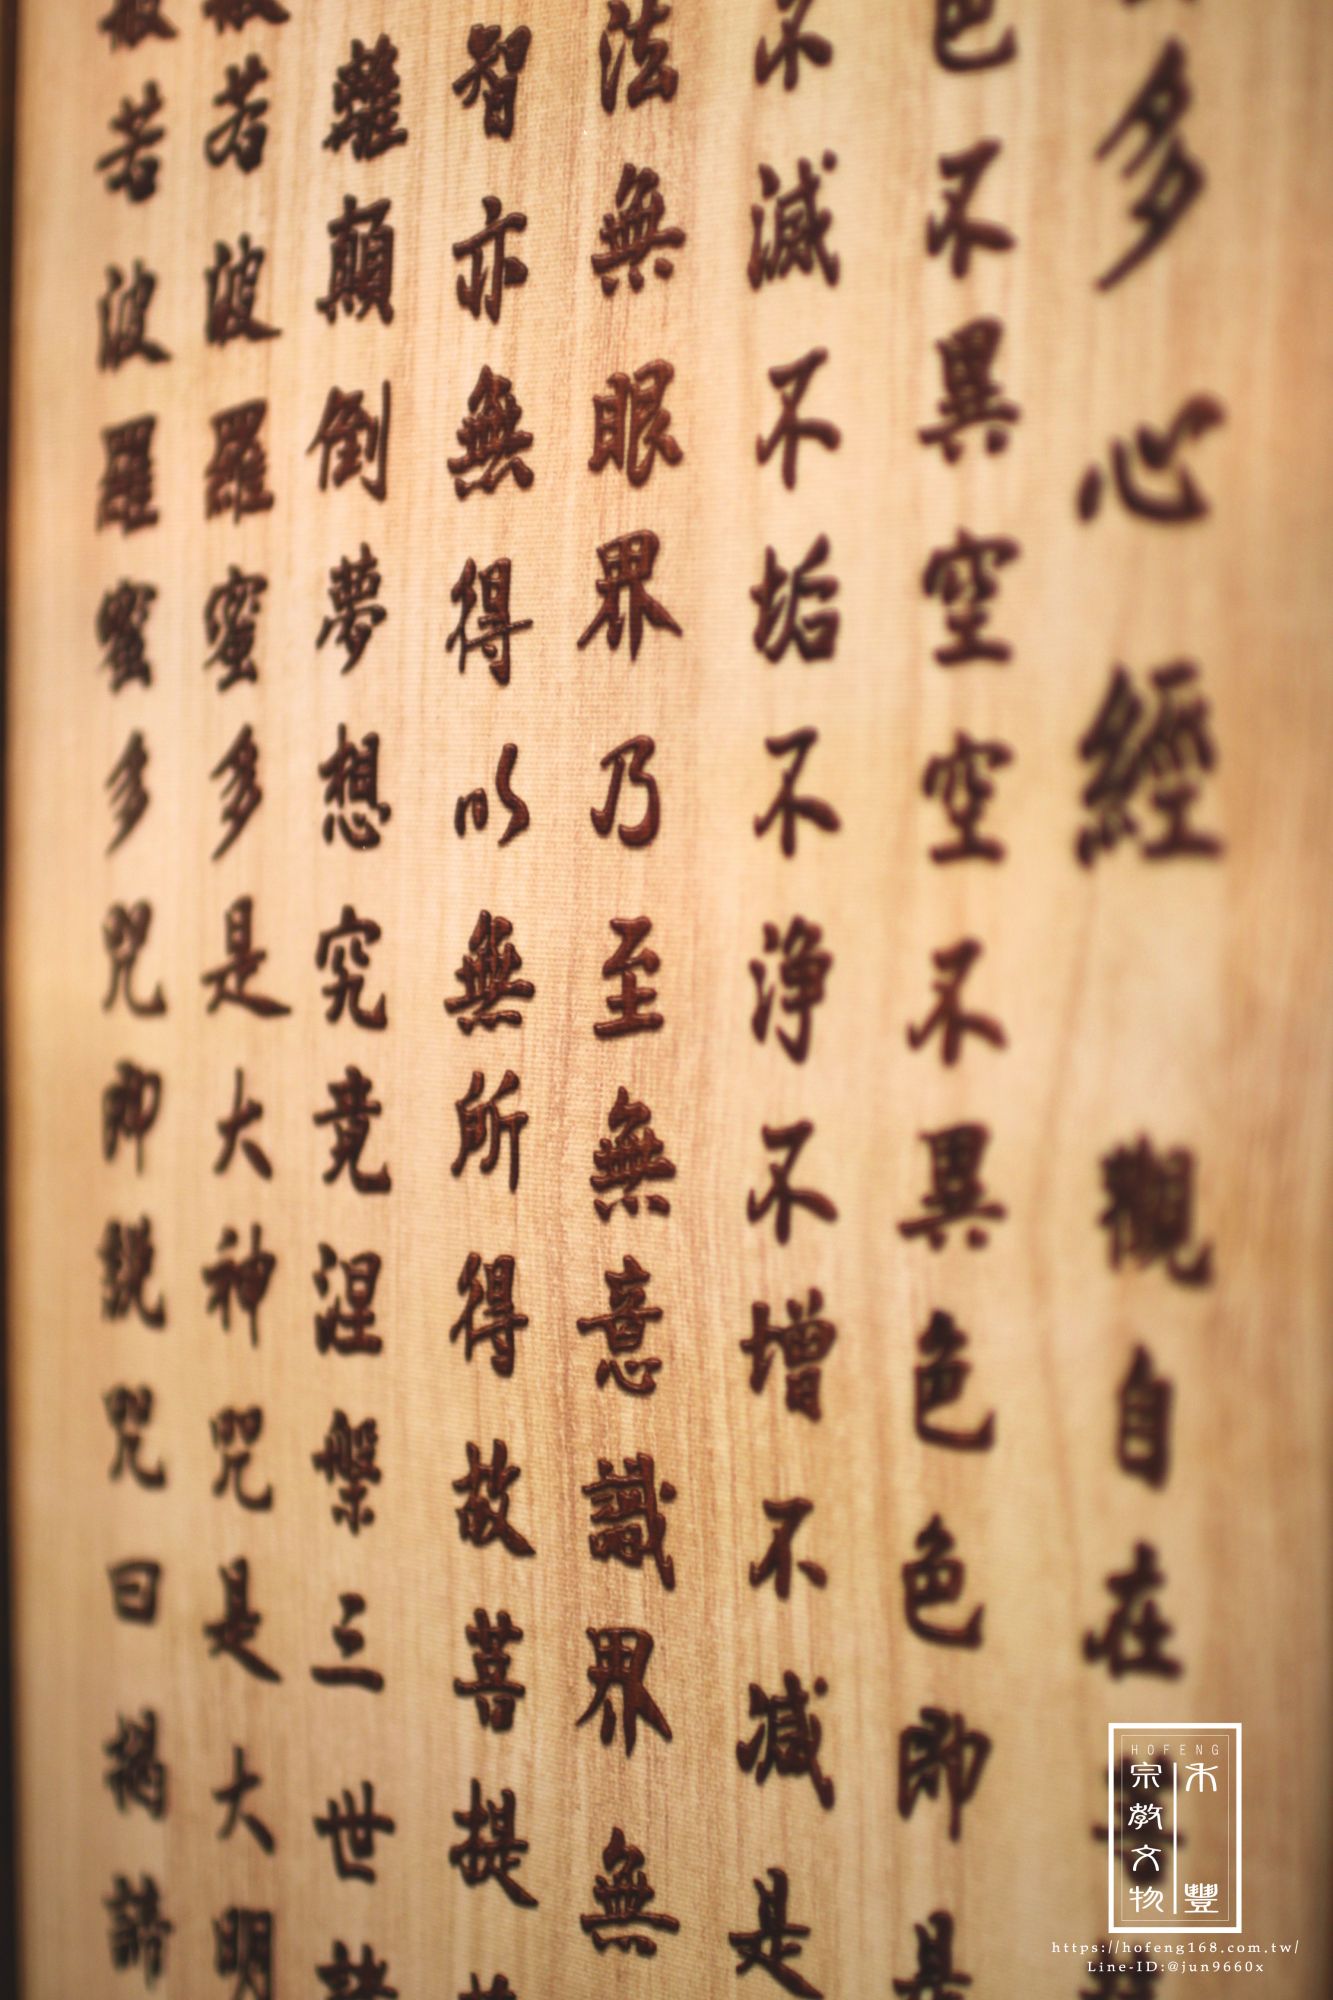 多心經 觀自在
色不異空空不異色色即是
不滅不垢不淨不增不減是
法無眼界乃至無意識界無
智亦無得以無所得故菩提
離顛倒夢想究竟涅槃三世諸
般若波羅蜜多是大神咒是大明
般若波羅蜜多咒即說咒曰揭諦
HOFENG
禾豐
宗教文物
https://hofeng168.com.tw/
Line-ID:@jun9660x